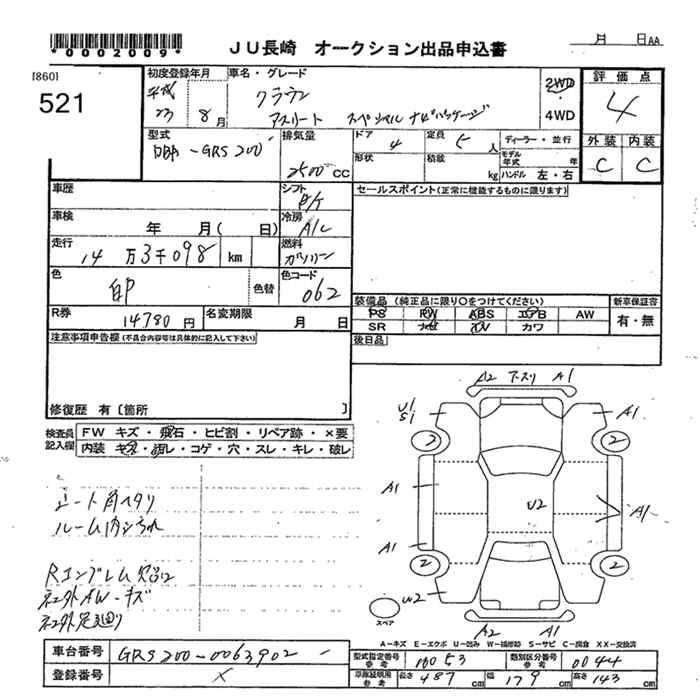 *0002009*
JU長崎 オークション出品申込書
月 日AA
[860]
521
初度登録年月
平成
23 8月
車名・グレード
クラウン
アスリート スペシャルナビパッケージ
2WD
4WD
評価点
4
外装 内装
C C
型式
DBA-GRS200
排気量
2500CC
ドア
4
定員
5人
形状
積載
kg
ディーラー・並行
モデル年式 年
ハンドル 左・右
車歴
シフト
車検
年 月( 日)
冷房
A/C
走行
14万3千098 km
燃料
ガソリン
色
白P
色替
色コード
062
R券
14780円
名変期限
月 日
セールスポイント(正常に機能するものに限ります)
装備品 (純正品に限り○をつけてください)
新車保証書
PS PW ABS エアB AW
SR ナビ TV カワ
有・無
後日品
注意事項申告欄(不具合内容等は具体的に記入して下さい)
修復歴 有〔箇所 〕
検査員記入欄
FW キズ・飛石・ヒビ割・リペア跡・×要
内装 キズ・汚レ・コゲ・穴・スレ・キレ・破レ
シート角ヘタリ
Rエンブレム欠品
社外AW-キズ
社外足廻り
A2 A1
U1
S1
A1
2 2
A1
U2
A1
A1
2 2
U2
スペア
A2 A1
A-キズ E-エクボ U-凹み W-補修跡 S-サビ C-腐食 XX-交換済
車台番号
GRS200-0063902
登録番号
型式指定番号
参考
類別区分番号
参考
0044
車庫証明用
参考
長さ 487cm
幅 179cm
高さ 143cm